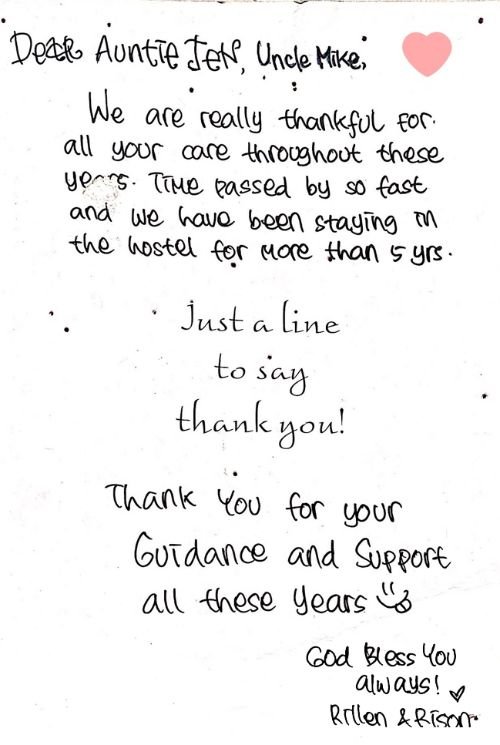 Dear Auntie Jen, Uncle Mike,
We are really thankful for
all your care throughout these
years. Time passed by so fast
and we have been staying in
the hostel for more than 5 yrs.
Just a line
to say
thank you!
Thank You for your
Guidance and Support
all these Years
God Bless You
always!
& Rison